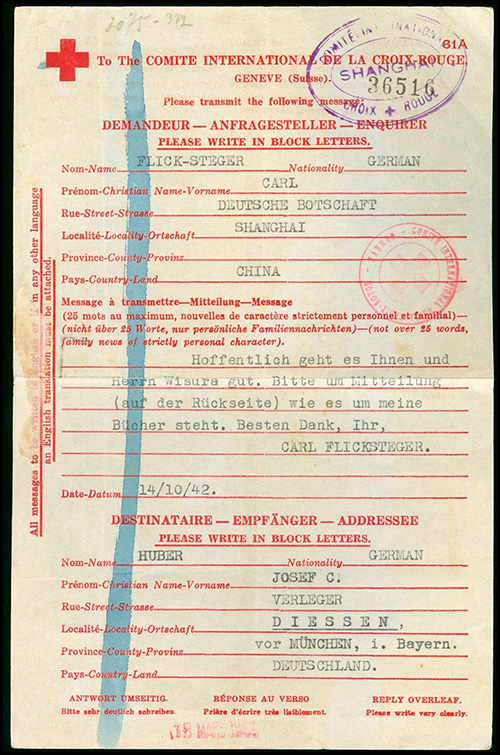 61A
To The COMITE INTERNATIONAL DE LA CROIX-ROUGE,
GENEVE (Suisse).
COMITÉ INTERNATIONAL
SHANGHAI
36516
CROIX ROUGE
Please transmit the following message:
DEMANDEUR — ANFRAGESTELLER — ENQUIRER
PLEASE WRITE IN BLOCK LETTERS.
Nom-Name FLICK-STEGER Nationality GERMAN
Prénom-Christian Name-Vorname CARL
Rue-Street-Strasse DEUTSCHE BOTSCHAFT
Localité-Locality-Ortschaft SHANGHAI
Province-County-Provinz
Pays-Country-Land CHINA
Message à transmettre—Mitteilung—Message
(25 mots au maximum, nouvelles de caractère strictement personnel et familial)—
(nicht über 25 Worte, nur persönliche Familiennachrichten)—(not over 25 words,
family news of strictly personal character).
Hoffentlich geht es Ihnen und
Herrn Wisura gut. Bitte um Mitteilung
(auf der Rückseite) wie es um meine
Bücher steht. Besten Dank, Ihr,
CARL FLICKSTEGER.
Date-Datum 14/10/42.
All messages to be written in English or if in any other language
an English translation must be attached.
DESTINATAIRE — EMPFÄNGER — ADDRESSEE
PLEASE WRITE IN BLOCK LETTERS.
Nom-Name HUBER Nationality GERMAN
Prénom-Christian Name-Vorname JOSEF C.
Rue-Street-Strasse VERLEGER
Localité-Locality-Ortschaft DIESSEN,
Province-County-Provinz vor MÜNCHEN, i. Bayern.
Pays-Country-Land DEUTSCHLAND.
ANTWORT UMSEITIG. RÉPONSE AU VERSO REPLY OVERLEAF.
Bitte sehr deutlich schreiben. Prière d'écrire très lisiblement. Please write very clearly.